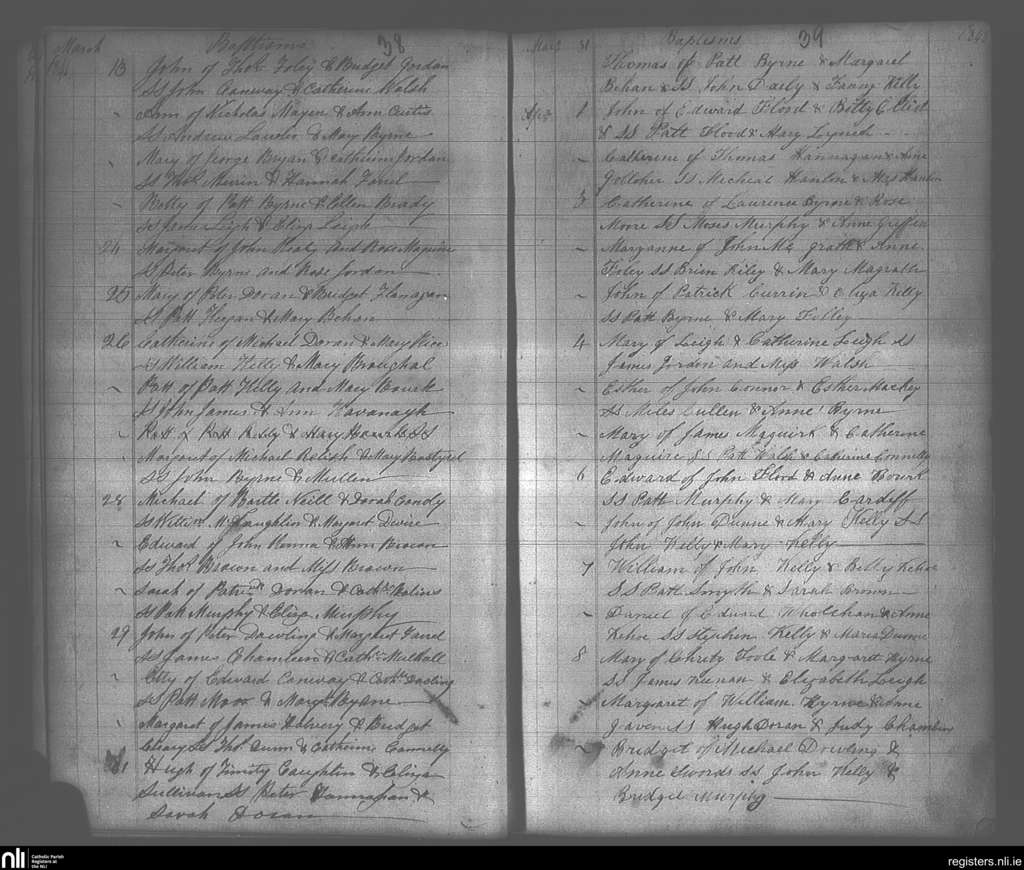 March Baptisms 38
13 John of Thos Foley & Bridget Jordan
SS John Conway & Catherine Walsh
~ Ann of Nicholas & Ann Curtis
SS Andrew Lawlor & Mary Byrne
~ Mary of George Bryan & Catherine Jordan
SS Thos & Hannah Farrel
~ of Patt Byrne & Ellen Brady
SS James Leigh & Eliza Leigh
24 Margaret of John Healy and Rose Maguire
SS Peter Byrne and Rose Jordon
25 Mary of Peter Doran & Bridget Flanagan
SS Patt Hegan & Mary Behan
26 Catherine of Michael Doran & Mary
SS William Kelly & Mary
~ Patt of Patt Kelly and Mary
SS John James & Ann Kavanagh
~ Patt of Patt Kelly & Mary SS
~ Margaret of Michael & Mary
SS John Byrne & Mullen
28 Michael of Bartle Neill & Dorah Condy
SS Willm McLaughlin & Margaret Devine
~ Edward of John & Ann Brown
SS Thos Brown and Miss Brown
~ Sarah of Patrick Doran & Cathe
SS Patt Murphy & Eliza Murphy
29 John of Peter Dowling & Margaret Farrel
SS James Chambers & Cathe Mulhall
~ of Edward Conway & Cathe
SS Patt Moor & Mary Byrne
~ Margaret of James & Bridget
Cleary SS Thos Quinn & Catherine Connelly
31 Hugh of Timity Caughlin & Eliza
Sullivan SS Peter Hannagan &
Sarah Doran
Baptisms 39
31 Thomas of Patt Byrne & Margaret
Behan & SS John Daily & Fanny Kelly
1 John of Edward Flood & Betty
& SS Patt Flood & Mary Lynch
~ Catherine of Thomas Hannagan & Anne
SS Micheal Hanlon & Mrs Hanlon
3 Catherine of Laurence Byrne & Rose
Moore SS Moses Murphy & Anne Griffin
~ Maryanne of John Mc grath & Anne
Foley SS Brien Riley & Mary Magrath
~ John of Patrick Currin & Eliza Kelly
SS Patt Byrne & Mary
4 Mary of Leigh & Catherine Leigh SS
James Jordon and Miss Walsh
~ Esther of John Connor & Esther Hackey
SS Miles Cullen & Anne Byrne
~ Mary of James Maguirk & Catherine
Maguire SS Patt Walsh & Catherine Connelly
6 Edward of John Flood & Anne Bourk
SS Patt Murphy & Mary Cardiff
~ John of John Dunne & Mary Kelly SS
John Kelly & Mary Kelly
7 William of John Kelly & Betty Kehoe
SS Patt Smyth & Sarah Brown
~ Daniel of Edward & Anne
Kehoe SS Stephen Kelly & Maria Dunne
8 Mary of Christy Toole & Margarett Byrne
SS James Keenan & Elizabeth Leigh
~ Margaret of William Byrne & Anne
SS Hugh Doran & Judy
~ Bridget of Michael Dowling &
Anne Swords SS John Kelly &
Bridget Murphy
nli
Catholic Parish
Registers at
the NLI
registers.nli.ie